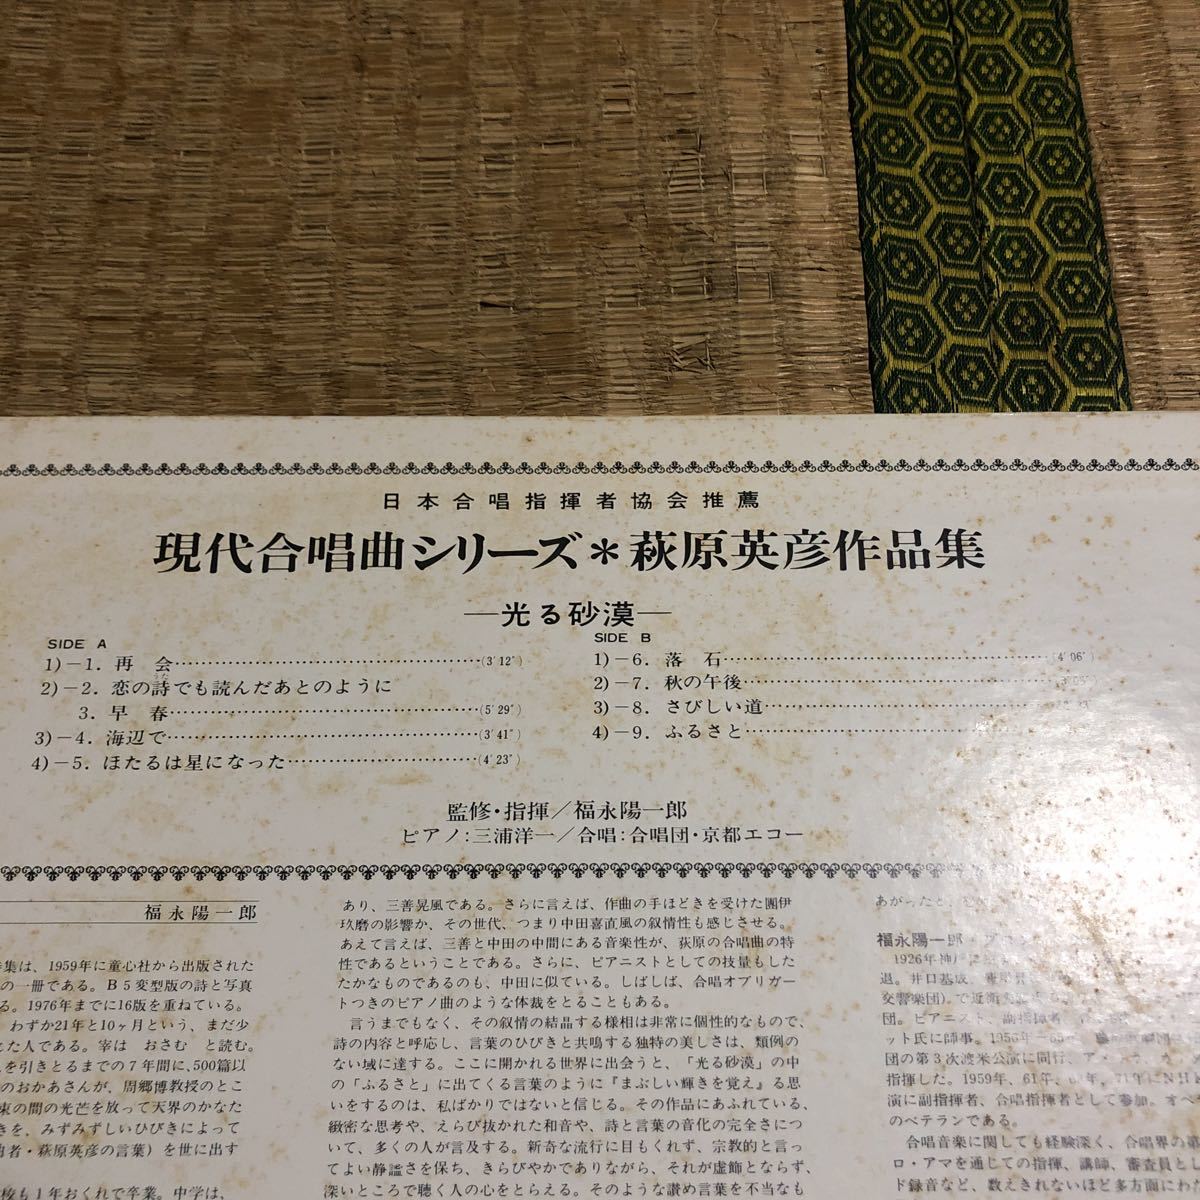 日本合唱指揮者協会推薦
現代合唱曲シリーズ＊萩原英彦作品集
—光る砂漠—
SIDE A
1)−1. 再 会……(3'12")
2)−2. 恋の詩でも読んだあとのように
うた
3. 早 春……(5'29")
3)−4. 海辺で……(3'41")
4)−5. ほたるは星になった……(4'23")
SIDE B
1)−6. 落 石……(4'06")
2)−7. 秋の午後……
3)−8. さびしい道……
4)−9. ふるさと……
監修・指揮／福永陽一郎
ピアノ:三浦洋一／合唱:合唱団・京都エコー
福永陽一郎
集は、1959年に童心社から出版された
の一冊である。Ｂ５変型版の詩と写真
る。1976年までに16版を重ねている。
わずか21年と10ヶ月という、まだ少
た人である。宰は おさむ と読む。
を引きとるまでの７年間に、500篇以
のおかあさんが、周郷博教授のとこ
束の間の光芒を放って天界のかなた
きを、みずみずしいひびきによって
者・萩原英彦の言葉）を世に出す
校も１年おくれで卒業。中学は、
あり、三善晃風である。さらに言えば、作曲の手ほどきを受けた團伊
玖磨の影響か、その世代、つまり中田喜直風の叙情性も感じさせる。
あえて言えば、三善と中田の中間にある音楽性が、萩原の合唱曲の特
性であるということである。さらに、ピアニストとしての技量もした
たかなものであるのも、中田に似ている。しばしば、合唱オブリガー
トつきのピアノ曲のような体裁をとることもある。
言うまでもなく、その叙情の結晶する様相は非常に個性的なもので、
詩の内容と呼応し、言葉のひびきと共鳴する独特の美しさは、類例の
ない域に達する。ここに開かれる世界に出会うと、「光る砂漠」の中
の「ふるさと」に出てくる言葉のように『まぶしい輝きを覚え』る思
いをするのは、私ばかりではないと信じる。その作品にあふれている、
緻密な思考や、えらび抜かれた和音や、詩と言葉の音化の完全さにつ
いて、多くの人が言及する。新奇な流行に目もくれず、宗教的と言っ
てよい静謐さを保ち、きらびやかでありながら、それが虚飾とならず、
深いところで聴く人の心をとらえる。そのような讃め言葉を不当なも
あがったと、
福永陽一郎・
1926年神戸
退。井口基成、
交響楽団）で近衛
団。ピアニスト、副指揮者、
ット氏に師事。1956年
団の第３次渡米公演に同行、
指揮した。1959年、61年、
演に副指揮者、合唱指揮者として参加。オペ
のベテランである。
合唱音楽に関しても経験深く、合唱界の第
ロ・アマを通じての指揮、講師、審査員とし
ド録音など、数えきれないほど多方面にわ